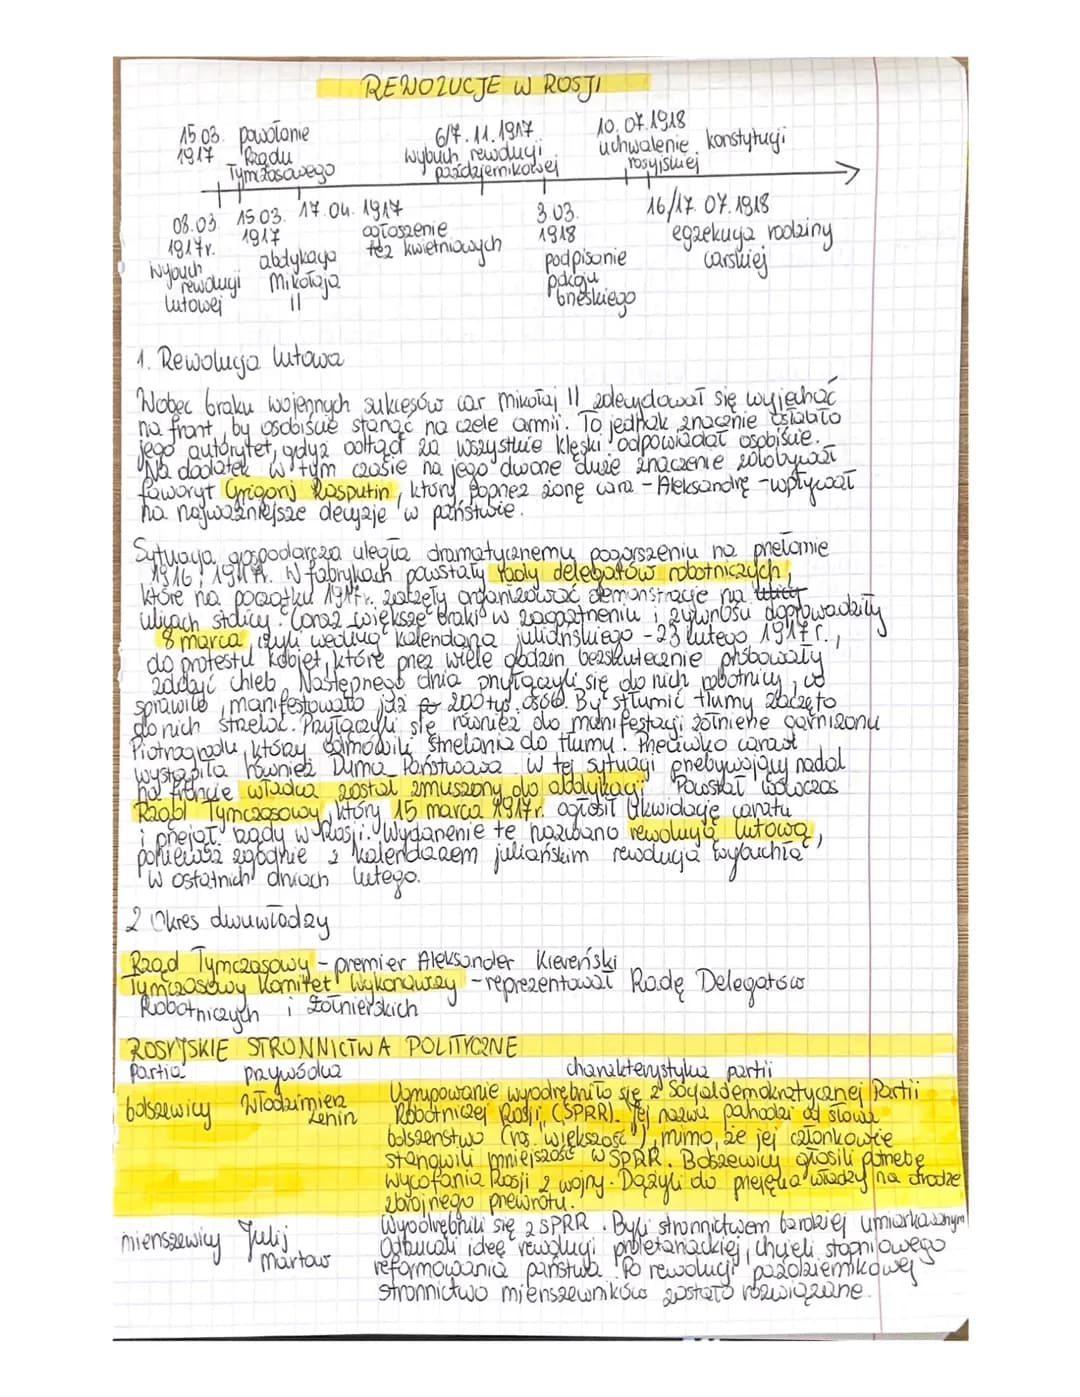 REWOLUCJE W ROSJI
15.03. powołanie
1917 Rządu
Tymczasowego
6/7.11.1917
wybuch rewolucji
październikowej
10.07.1918
uchwalenie konstytucji
rosyjskiej
08.03
1917r.
wybuch
rewolucji
lutowej
15.03.
1917
abdykacja
Mikołaja
II
17.04.1917
ogłoszenie
tez kwietniowych
3.03.
1918
podpisanie
pokoju
brzeskiego
16/17.07.1918
egzekucja rodziny
carskiej
1. Rewolucja lutowa
Wobec braku wojennych sukcesów car Mikołaj II zdecydował się wyjechać
na front, by osobiście stanąć na czele armii. To jednak znacznie osłabiło
jego autorytet, gdyż odtąd za wszystkie klęski odpowiadał osobiście.
Na dodatek w tym czasie na jego dworze duże znaczenie zdobywał
faworyt Grigorij Rasputin, który poprzez żonę cara - Aleksandrę - wpływał
na najważniejsze decyzje w państwie.
Sytuacja gospodarcza uległa dramatycznemu pogorszeniu na przełomie
1916 i 1917r. W fabrykach powstały rady delegatów robotniczych,
które na początku 1917r. zaczęły organizować demonstracje na
ulicach stolicy. Coraz większe braki w zaopatrzeniu i żywności doprowadziły
8 marca, czyli według kalendarza juliańskiego - 23 lutego 1917r.,
do protestu kobiet, które przez wiele godzin bezskutecznie próbowały
zdobyć chleb. Następnego dnia przyłączyli się do nich robotnicy, co
sprawiło, manifestowało już 200 tys. osób. By stłumić tłumy zaczęto
do nich strzelać. Przyłączyli się również do manifestacji żołnierze garnizonu
Piotrogrodu, którzy odmówili strzelania do tłumy. Przeciwko carowi
wystąpiła również Duma Państwowa. W tej sytuacji przebywający nadal
na froncie władca został zmuszony do abdykacji. Powstał wówczas
Rząd Tymczasowy, który 15 marca 1917r. ogłosił likwidację caratu
i przejął rządy w Rosji. Wydarzenie te nazwano rewolucją lutową,
ponieważ zgodnie z kalendarzem juliańskim rewolucja wybuchła
w ostatnich dniach lutego.
2 Okres dwuwładzy
Rząd Tymczasowy - premier Aleksander Kiereński
Tymczasowy Komitet Wykonawczy - reprezentował Radę Delegatów
Robotniczych i Żołnierskich
ROSYJSKIE STRONNICTWA POLITYCZNE
Partia przywódca charakterystyka partii
bolszewicy Włodzimierz
Lenin
Ugrupowanie wyodrębniło się z Socjaldemokratycznej Partii
Robotniczej Rosji (SPRR). Jej nazwa pochodzi od słowa
bolszenstwo (ros. "większość"), mimo, że jej członkowie
stanowili mniejszość w SPRR. Bolszewicy głosili potrzebę
wycofania Rosji z wojny. Dążyli do przejęcia władzy na drodze
zbrojnego przewrotu.
mienszewicy Julij
Martow
Wyodrębnili się z SPRR. Byli stronnictwem bardziej umiarkowanym
Odrzucali ideę rewolucji proletariackiej, chcieli stopniowego
reformowania państwa. Po rewolucji październikowej
stronnictwo mienszewników zostało rozwiązane.